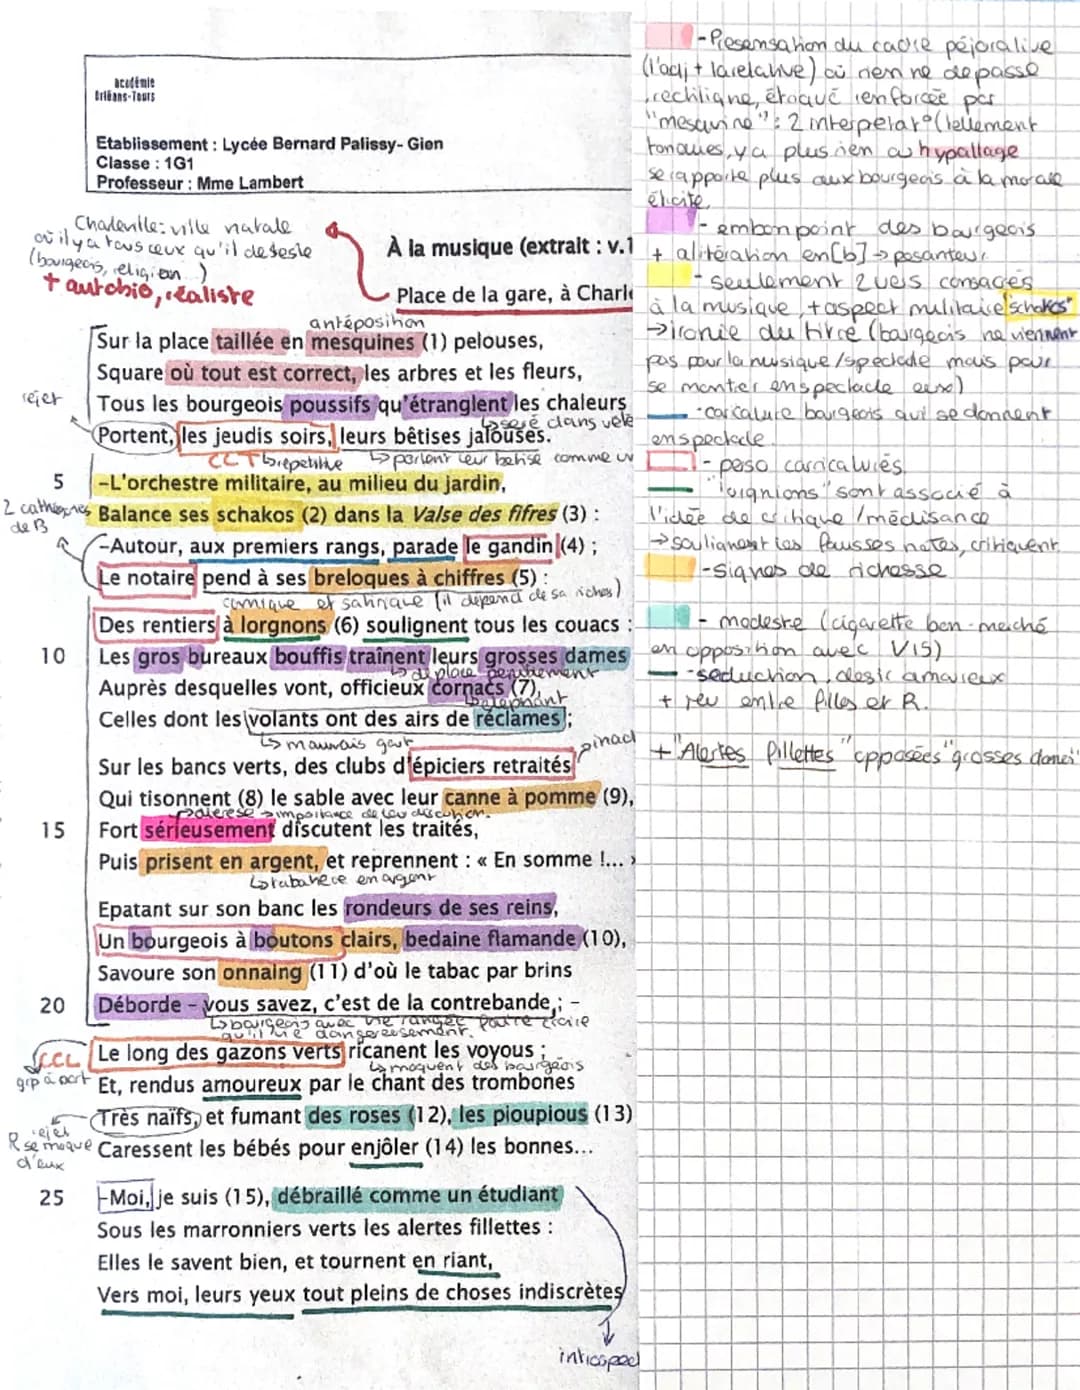 académie
Orléans-Tours
Etablissement : Lycée Bernard Palissy- Gien
Classe : 1G1
Professeur : Mme Lambert
ville natale
où il y a tous ceux qu'il deteste
(bourgeois, religion )
+ autobio, réaliste
À la musique (extrait : v.1
Place de la gare, à Charle
antéposition
Sur la place taillée en mesquines (1) pelouses,
Square où tout est correct, les arbres et les fleurs,
rejet
Tous les bourgeois poussifs qu'étranglent les chaleurs
↳ seré dans vête
Portent, les jeudis soirs, leurs bêtises jalouses.
CCT ↳ repetitive ↳ portent leur betise comme un
5 -L'orchestre militaire, au milieu du jardin,
2 cathégories de B
Balance ses schakos (2) dans la Valse des fifres (3) :
-Autour, aux premiers rangs, parade le gandin (4) ;
Le notaire pend à ses breloques à chiffres (5) :
comique et satirique (il dépend de sa riches)
Des rentiers à lorgnons (6) soulignent tous les couacs :
10 Les gros bureaux bouffis traînent leurs grosses dames
↳ deplace peniblement
Auprès desquelles vont, officieux cornacs (7),
↳ elephant
Celles dont les volants ont des airs de réclames ;
↳ mauvais gout
Sur les bancs verts, des clubs d'épiciers retraités
Qui tisonnent (8) le sable avec leur canne à pomme (9),
dierese → importance de leur discution.
15 Fort sérieusement discutent les traités,
Puis prisent en argent, et reprennent : « En somme !... »
↳ tabatiere en argent
Epatant sur son banc les rondeurs de ses reins,
Un bourgeois à boutons clairs, bedaine flamande (10),
Savoure son onnaing (11) d'où le tabac par brins
20 Déborde – vous savez, c'est de la contrebande ; –
↳ bourgeois avec vie rangée faire croire
qu'il vie dangereusement.
CCL
grp à part
Le long des gazons verts ricanent les voyous ;
↳ moquent des bourgeois
Et, rendus amoureux par le chant des trombones
Très naïfs, et fumant des roses (12), les pioupious (13)
rejet
R se moque d'eux
Caressent les bébés pour enjôler (14) les bonnes...
25 -Moi, je suis (15), débraillé comme un étudiant
Sous les marronniers verts les alertes fillettes :
Elles le savent bien, et tournent en riant,
Vers moi, leurs yeux tout pleins de choses indiscrètes
introspec
- Presensation du cadre péjorative
(l'adj + la relative) où rien ne depasse
, rectiligne, étriqué renforcée par
"mesquine" : 2 interpetat° (tellement
tondues, y a plus rien ou hypallage
se rapporte plus aux bourgeois à la morale
- embonpoint des bourgeois
+ alitération en [b] → pesanteur
- seulement 2 vers consacés
à la musique, + aspect militaire "schakos"
→ ironie du titre (bourgeois ne viennent
pas pour la musique / spectacle mais pour
se montrer en spectacle eux)
- caricature bourgeois qui se donnent
en spectacle.
- perso carricaturés
"lorgnions" sont associé à
l'idée de critique / médisance
→ soulignent les fausses notes, critiquent
- signes de richesse
- modestie (cigarette bon-marché
en opposition avec V15)
- seduction, desir amoureux
+ jeu entre filles et R.
+ "Alertes fillettes" opposées "grosses dames"